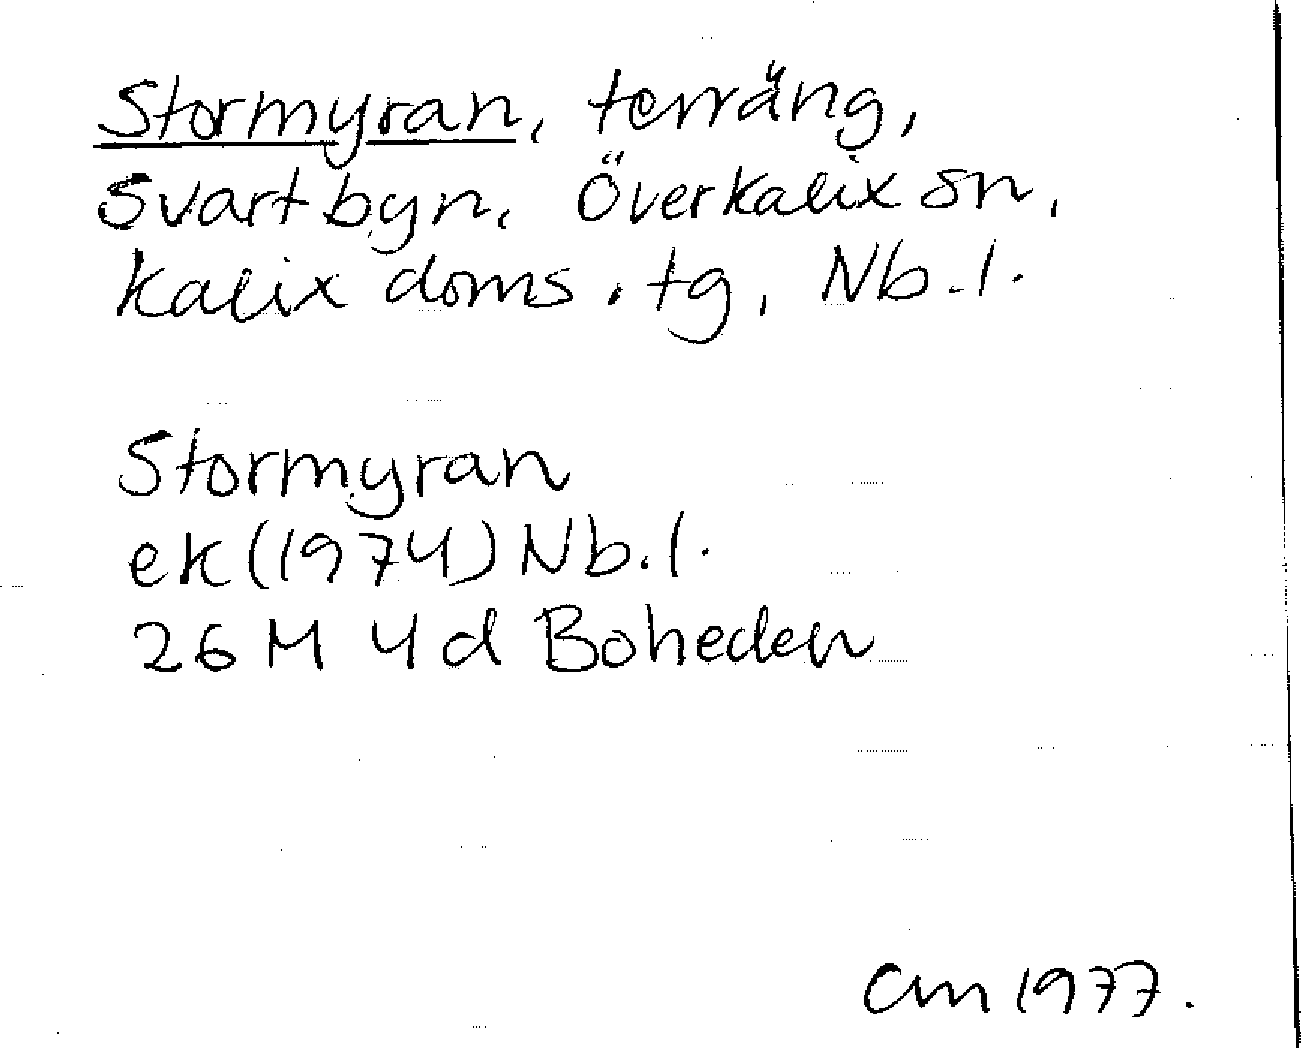 Stormyran, terräng,
Svartbyn, Överkalix sn,
Kalix doms.tg, Nb.l.
Stormyran
ek (1974) Nb.l.
26 M 4d Boheden
Cm 1977.